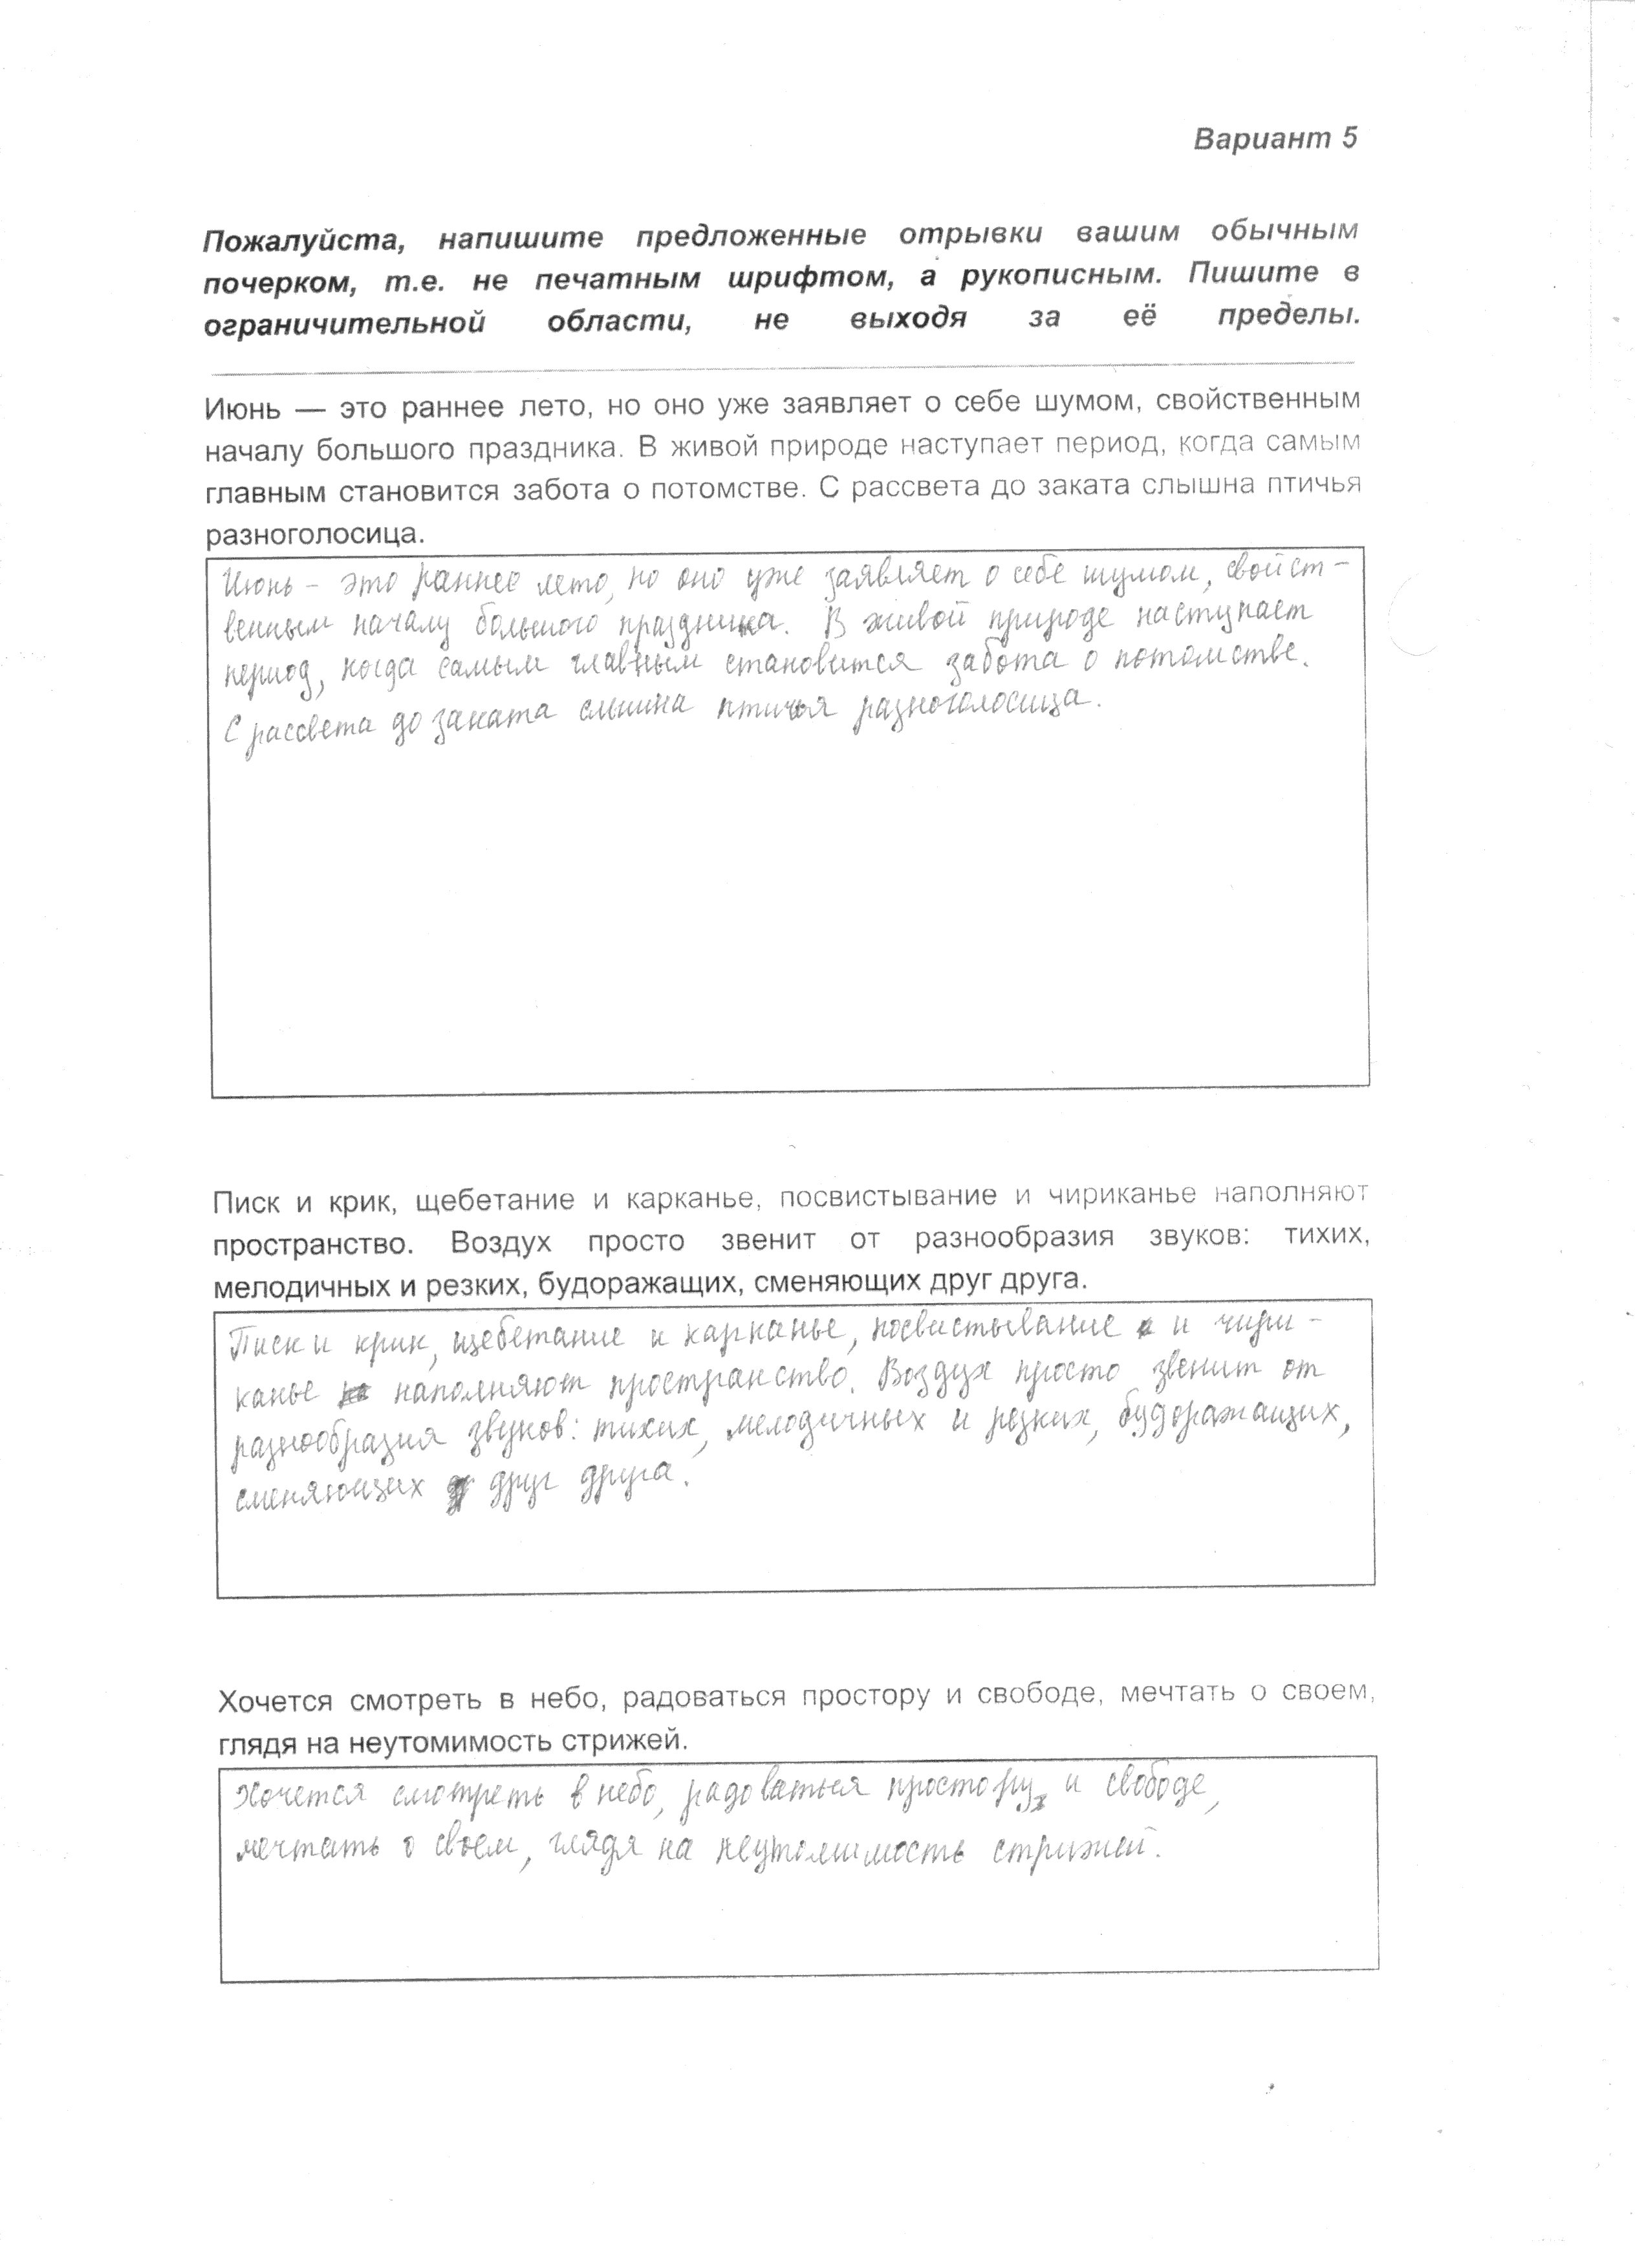 Вариант 5
Пожалуйста, напишите предложенные отрывки вашим обычным
почерком, т.е. не печатным шрифтом, а рукописным. Пишите в
ограничительной области, не выходя за её пределы.
Июнь — это раннее лето, но оно уже заявляет о себе шумом, свойственным
началу большого праздника. В живой природе наступает период, когда самым
главным становится забота о потомстве. С рассвета до заката слышна птичья
разноголосица.
Июнь – это раннее лето, но оно уже заявляет о себе шумом, свойст-
венным началу большого праздника. В живой природе наступает
период, когда самым главным становится забота о потомстве.
С рассвета до заката слышна птичья разноголосица.
Писк и крик, щебетание и карканье, посвистывание и чириканье наполняют
пространство. Воздух просто звенит от разнообразия звуков: тихих,
мелодичных и резких, будоражащих, сменяющих друг друга.
Писк и крик, щебетание и карканье, посвистывание и чири-
канье наполняют пространство. Воздух просто звенит от
разнообразия звуков: тихих, мелодичных и резких, будоражащих,
сменяющих друг друга.
Хочется смотреть в небо, радоваться простору и свободе, мечтать о своем,
глядя на неутомимость стрижей.
Хочется смотреть в небо, радоваться простору и свободе,
мечтать о своем, глядя на неутомимость стрижей.